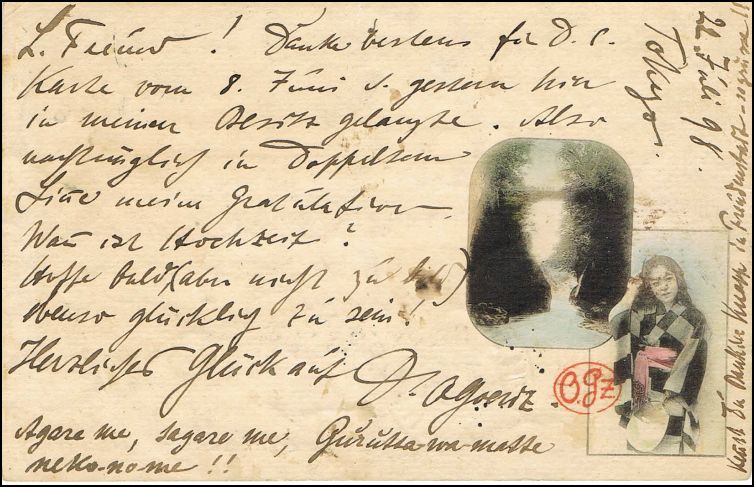 L. Freund ! Danke bestens für D. l.
Karte vom 8. Juni d. gestern hier
in meinen Besitz gelangte. Also
nachträglich in Doppeltem
Sinne meine Gratulation.
Wann ist Hochzeit ?
Hoffe bald (aber nicht zu bald)
ebenso glücklich zu sein.
Herzliches Glückauf
Agare me, sagare me, Gururta-wa-matte
neko-no-me !!
O.Gz
Tokyo.
22 Juli 98